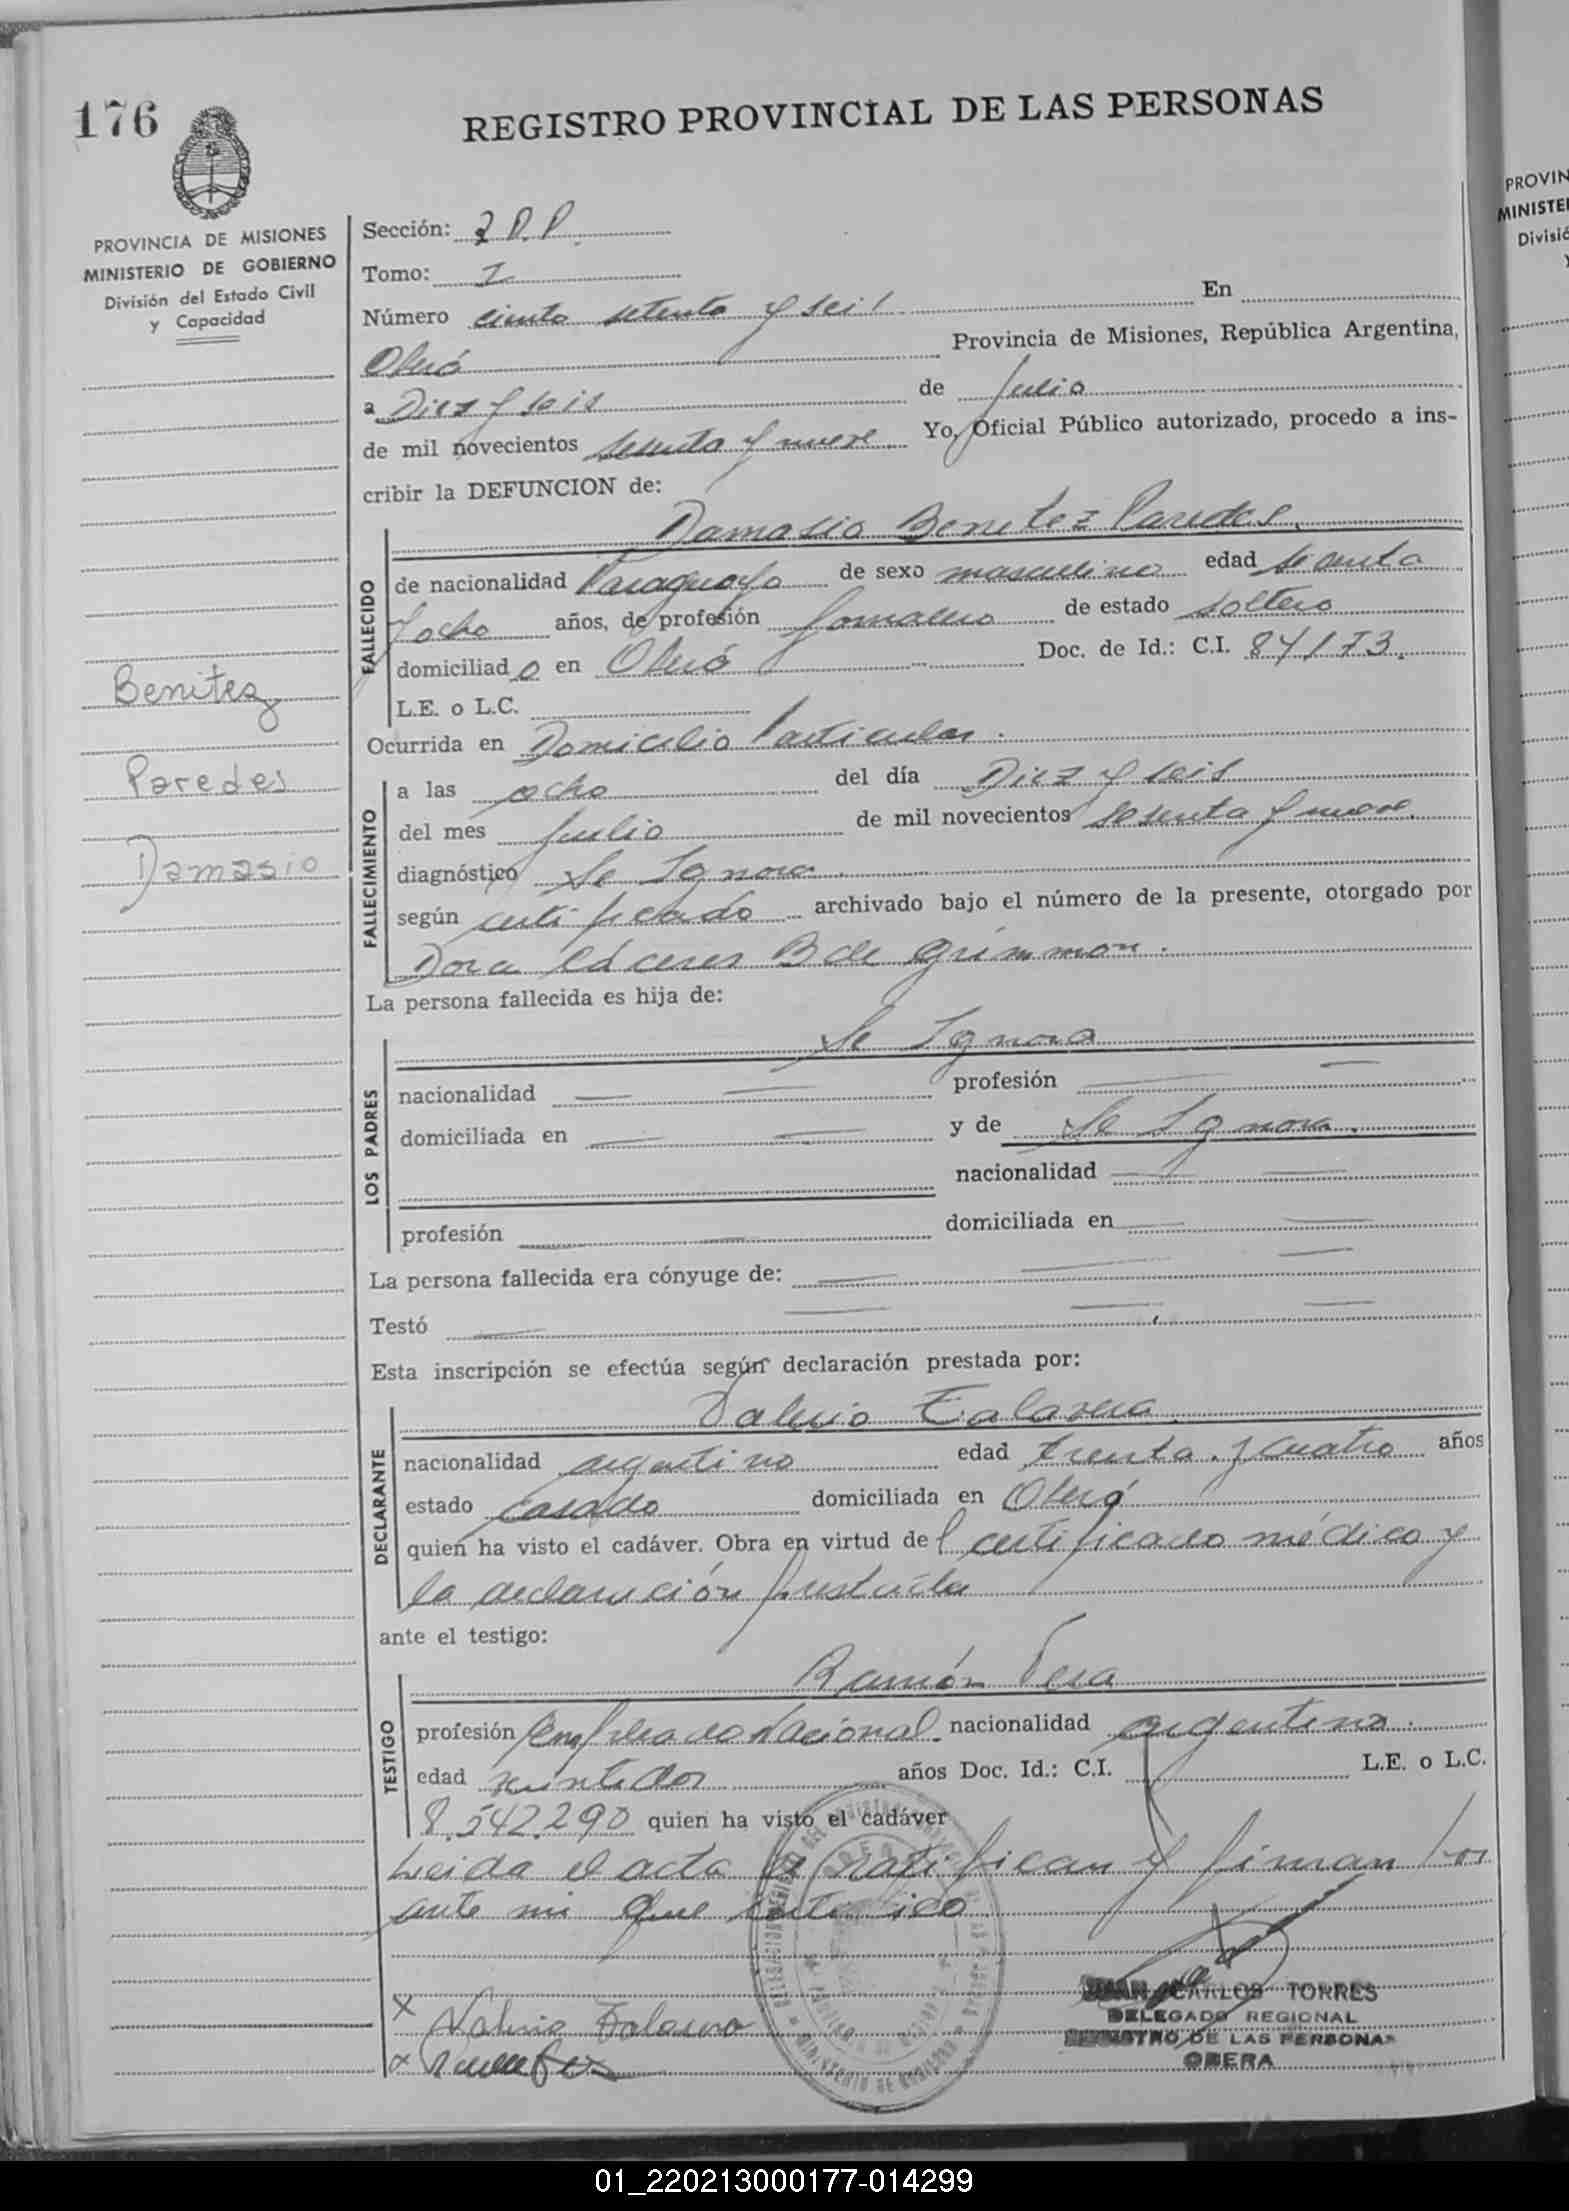 176
REGISTRO PROVINCIAL DE LAS PERSONAS
PROVINCIA DE MISIONES
MINISTERIO DE GOBIERNO
División del Estado Civil
y Capacidad
Sección: 2 D.P.
Tomo: I
Número ciento setenta y seis En
Oberá Provincia de Misiones, República Argentina,
a Diez y seis de Julio
de mil novecientos sesenta y nueve Yo, Oficial Público autorizado, procedo a ins-
cribir la DEFUNCION de:
Damasio Benitez Paredes.
FALLECIDO
de nacionalidad Paraguayo de sexo masculino edad sesenta
y ocho años, de profesión Jornalero de estado soltero
domiciliado en Oberá Doc. de Id.: C.I. 84173.
L.E. o L.C.
Benitez
Paredes
Damasio
Ocurrida en Domicilio Particular.
FALLECIMIENTO
a las ocho del día Diez y seis
del mes Julio de mil novecientos sesenta y nueve.
diagnóstico Se Ignora.
según certificado archivado bajo el número de la presente, otorgado por
Dora B de Grimmon.
La persona fallecida es hija de:
Se Ignora
LOS PADRES
nacionalidad — — profesión — —
domiciliada en — — y de Se Ignora.
nacionalidad — —
profesión — domiciliada en — —
La persona fallecida era cónyuge de: — — —
Testó — — — —
Esta inscripción se efectúa según declaración prestada por:
Valerio Talavera
DECLARANTE
nacionalidad argentino edad treinta y cuatro años
estado casado domiciliada en Oberá
quien ha visto el cadáver. Obra en virtud del certificado médico y
la declaración prestada
ante el testigo:
Ramón Vera
TESTIGO
profesión Empleado Nacional. nacionalidad argentino.
edad veintidos años Doc. Id.: C.I. L.E. o L.C.
8.542.290 quien ha visto el cadáver
Leida el acta la ratifican y firman por
ante mi que certifico
x Valerio Talavera
x
JUAN CARLOS TORRES
DELEGADO REGIONAL
REGISTRO DE LAS PERSONAS
OBERA
PROVIN
MINISTE
Divisió
01_220213000177-014299